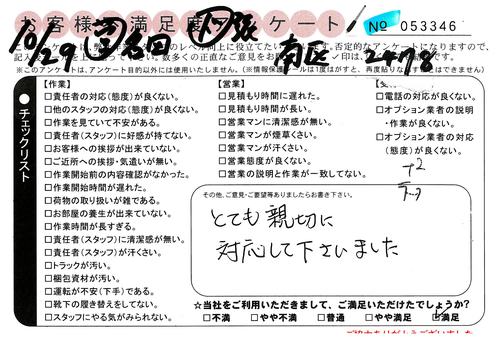 お客様満足度アンケート
№ 053346
10/29
南区 2478
※このアンケートは、アンケート目的以外には使用いたしません。(※情報保護シールは1度はがすと、再度貼りな はできません)
チェックリスト
【作業】
□責任者の対応(態度)が良くない。
□他のスタッフの対応(態度)が良くない。
□作業を見ていて不安がある。
□責任者(スタッフ)に好感が持てない。
□お客様への挨拶が出来ていない。
□ご近所への挨拶・気遣いが無い。
□作業開始前の内容確認がなかった。
□作業開始時間が遅れた。
□荷物の取り扱いが雑である。
□お部屋の養生が出来ていない。
□作業時間が長すぎる。
□責任者(スタッフ)に清潔感が無い。
□責任者(スタッフ)が汗くさい。
□トラックが汚い。
□梱包資材が汚い。
□運転が不安(下手)である。
□靴下の履き替えをしてない。
□スタッフにやる気がみられない。
【営業】
□見積もり時間に遅れた。
□見積もり時間が長い。
□営業マンに清潔感が無い。
□営業マンが煙草くさい。
□営業マンが汗くさい。
□営業態度が良くない。
□営業の説明と作業が一致してない。
□電話の対応が良くない。
□オプション業者の説明
・作業が良くない。
□オプション業者の対応
(態度)が良くない。
その他、ご意見・ご要望等ありましたらお書き下さい。
とても親切に
対応して下さいました
☆当社をご利用いただきまして、ご満足いただけたでしょうか?
□不満 □やや不満 □普通 □やや満足 ☑満足
ご協力ありがとうございました